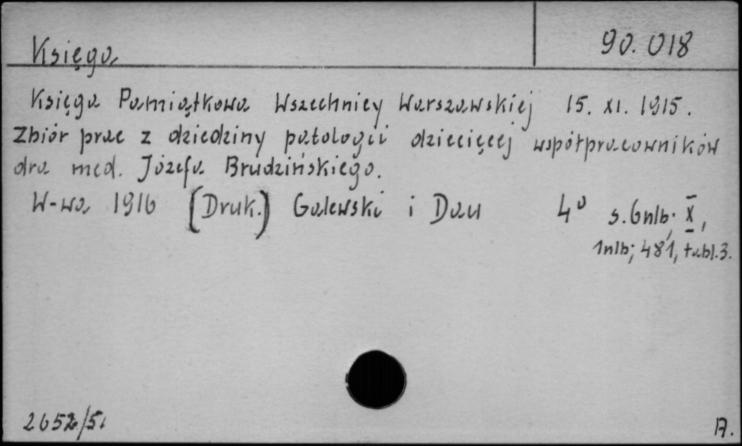 Księga
90.018
Księga Pamiątkowa Wszechnicy Warszawskiej 15. XI. 1915.
Zbiór prac z dziedziny patologii dziecięcej współpracowników
dra med. Józefa Brudzińskiego.
W-wa 1916 [Druk.] Galewski i Dau 4° s. 6nlb; X,
1nlb; 481, tabl. 3.
2652/51
A.